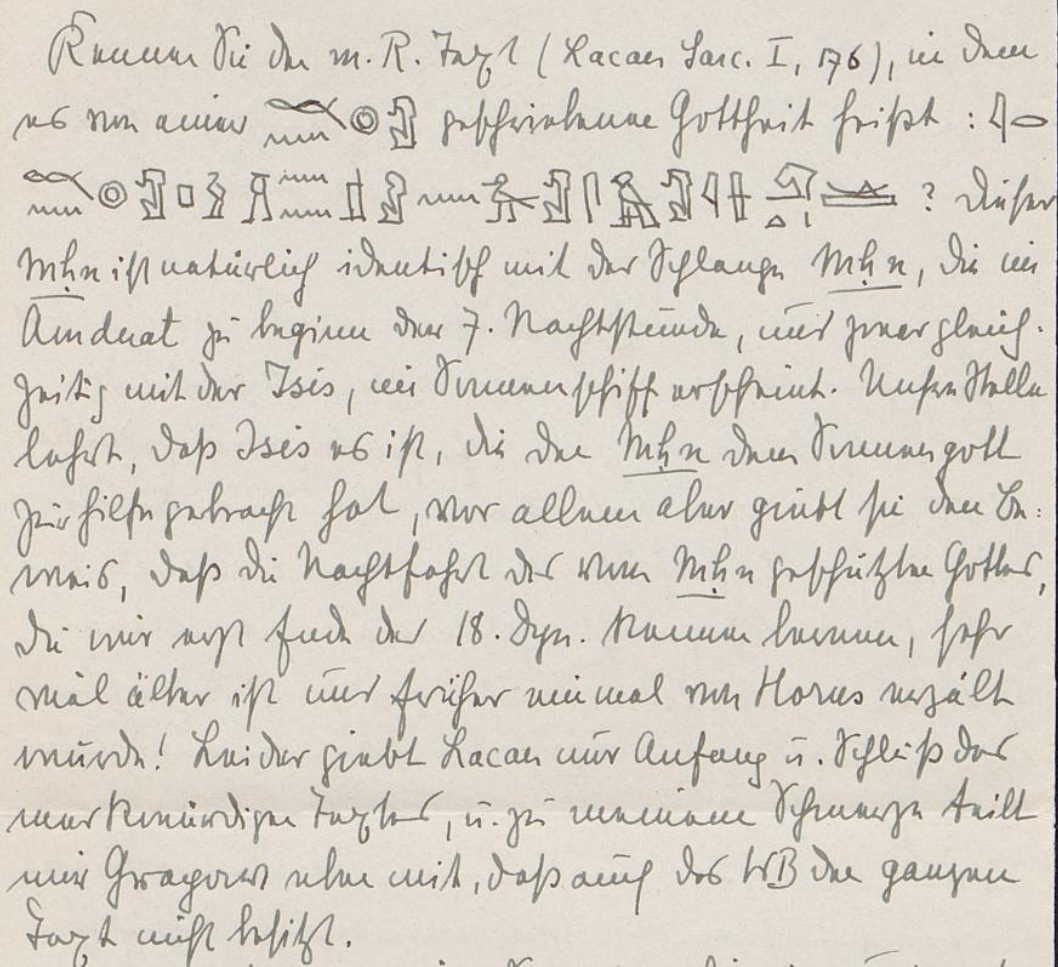 Kennen Sie den m. R. Text (Lacau Sarc. I, 176), in dem
es von einer 𓎔𓈖𓊗𓀭 geschriebene Gottheit heißt : 𓇋𓂋
𓊪 𓈖 𓇋 ? Dieser
Mḥn ist natürlich identisch mit der Schlange Mḥn, die im
Amduat zu beginn der 7. Nachtstunde, und zwar gleich-
zeitig mit der Isis, im Sonnenschiff erscheint. Unsre Stelle
lehrt, daß Isis es ist, die den Mḥn dem Sonnengott
zur hilfe gebracht hat, vor allem aber giebt sie den Be-
weis, daß die Nachtfahrt des vom Mḥn geschützten Gottes,
die wir erst Ende der 18. Dyn. kennen lernen, sehr
viel älter ist und früher einmal von Horus erzält
wurde! Leider giebt Lacau nur Anfang u. Schluß des
merkwürdigen Textes, u. zu meinem Schmerze teilt
mir Grapow eben mit, daß auch das WB den ganzen
Text nicht besitzt.